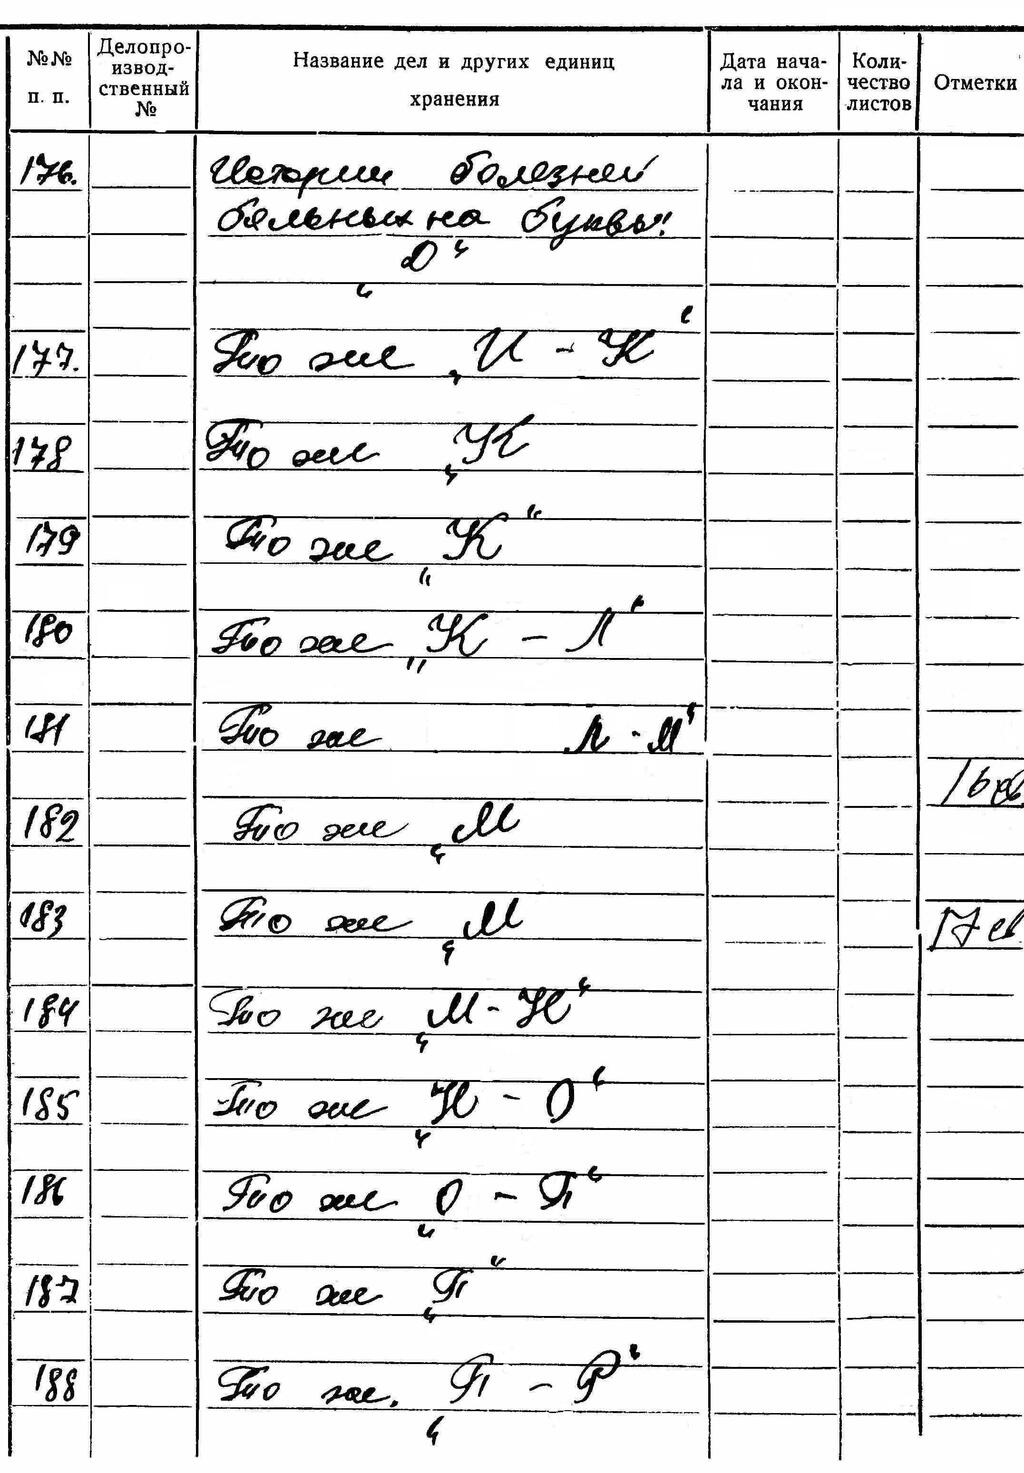 №№ п. п. Делопро-извод-ственный № Название дел и других единиц хранения Дата нача-ла и окон-чания Коли-чество листов Отметки
176. Истории болезней
больных на буквы:
„О“
177. То же „И - К“
178 То же „К
179 То же „К“
180 То же „К - Л“
181 То же Л - М“
16 св.
182 То же „М
183 То же „М 17 св
184 То же „М - Н“
185 То же „Н - О“
186 То же „О - П“
187 То же „П“
188 То же. „П - Р“